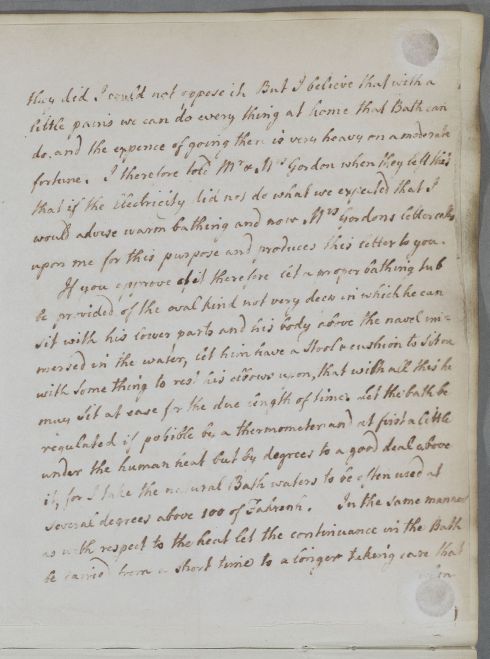 they did I could not oppose it. But I believe that with a
little pains we can do every thing at home that Bath can
do. and the expence of going there is very heavy on a moderate
fortune. I therefore told Mr & Mrs Gordon when they left this
that if the Electricity did not do what we expected that I
would advise warm bathing and now Mrs Gordons letter calls
upon me for this purpose and produces this letter to you.
If you approve of it therefore let a proper bathing tub
be provided of the oval kind not very deep in which he can
sit with his lower parts and his body above the navel im=
mersed in the water, let him have a stool & cushion to sit on
with some thing to rest his elbows upon, that with all this he
may sit at ease for the due length of time. Let the bath be
regulated if possible by a thermometer and at first a little
under the human heat but by degrees to a good deal above
it, for I take the natural Bath waters to be often used at
several degrees above 100 of Fahrenh. In the same manner
as with respect to the heat let the continuance in the Bath
be carried from a short time to a longer taking care that
when